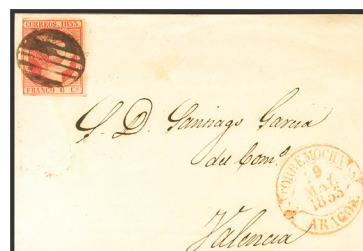 CORREOS. 1853.
FRANCO 6 Cs
S. D. Santiago Garcia
del Comº
Valencia
TORREMOCHA
9
MAY.
1853
ARAGON.